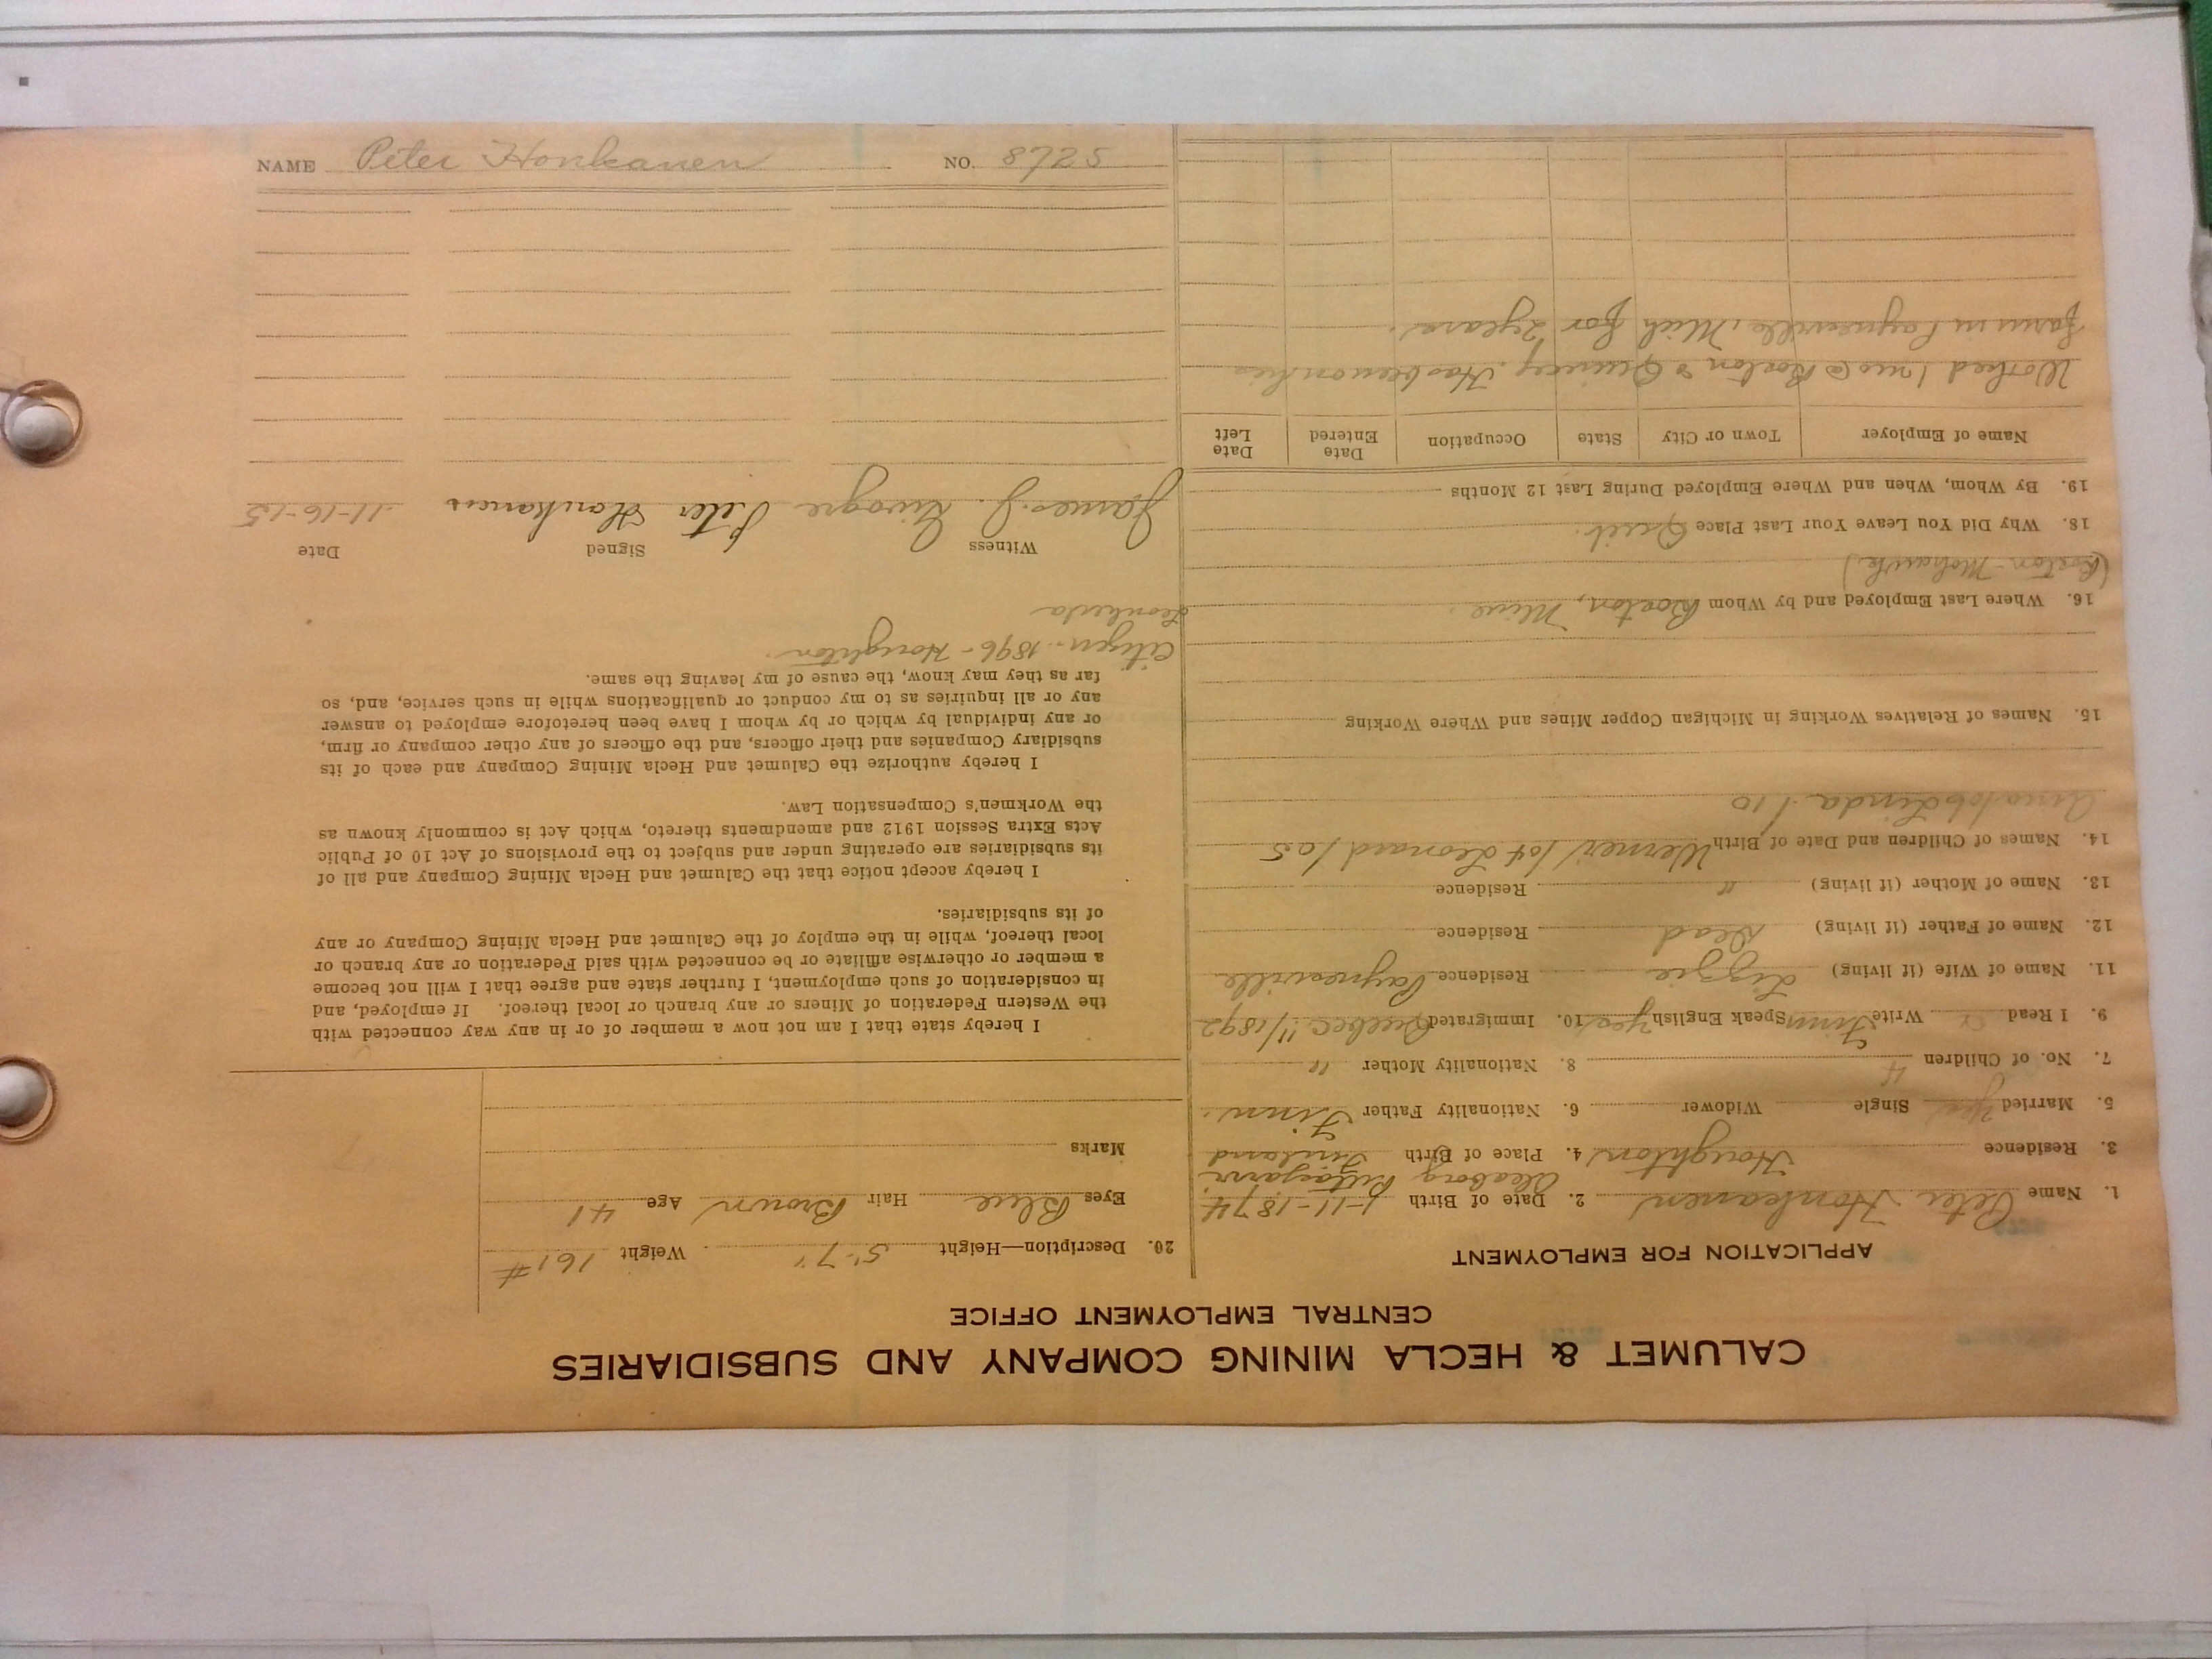 CALUMET & HECLA MINING COMPANY AND SUBSIDIARIES
CENTRAL EMPLOYMENT OFFICE
APPLICATION FOR EMPLOYMENT
1. Name Peter Honkanen 2. Date of Birth 1-11-1874
3. Residence Houghton 4. Place of Birth Finland
5. Married Yes Single Widower 6. Nationality Father Finn.
7. No. of Children 4 8. Nationality Mother "
9. I Read Write Finn Speak English Yes 10. Immigrated Quebec 11/1892
11. Name of Wife (if living) Lizzie Residence Paynesville
12. Name of Father (if living) Dead Residence
13. Name of Mother (if living) " Residence
14. Names of Children and Date of Birth Werner/04 Leonard/05
Linda /10
15. Names of Relatives Working in Michigan Copper Mines and Where Working
16. Where Last Employed and by Whom Boston, Mine.
(Boston-Mohawk)
18. Why Did You Leave Your Last Place Quit.
19. By Whom, When and Where Employed During Last 12 Months
Name of Employer Town or City State Occupation Date Entered Date Left
Worked 1 mo @ Boston & Quincy. Has been on his
farm in Paynesville, Mich for 2 years.
20. Description—Height 5'-7" Weight 161#
Eyes Blue Hair Brown Age 41
Marks
I hereby state that I am not now a member of or in any way connected with
the Western Federation of Miners or any branch or local thereof. If employed, and
in consideration of such employment, I further state and agree that I will not become
a member or otherwise affiliate or be connected with said Federation or any branch or
local thereof, while in the employ of the Calumet and Hecla Mining Company or any
of its subsidiaries.
I hereby accept notice that the Calumet and Hecla Mining Company and all of
its subsidiaries are operating under and subject to the provisions of Act 10 of Public
Acts Extra Session 1912 and amendments thereto, which Act is commonly known as
the Workmen's Compensation Law.
I hereby authorize the Calumet and Hecla Mining Company and each of its
subsidiary Companies and their officers, and the officers of any other company or firm,
or any individual by which or by whom I have been heretofore employed to answer
any or all inquiries as to my conduct or qualifications while in such service, and, so
far as they may know, the cause of my leaving the same.
Citizen - 1896 - Houghton.
Witness Signed Date
James J. Peter Honkanen 11-16-15
NAME Peter Honkanen NO. 8725